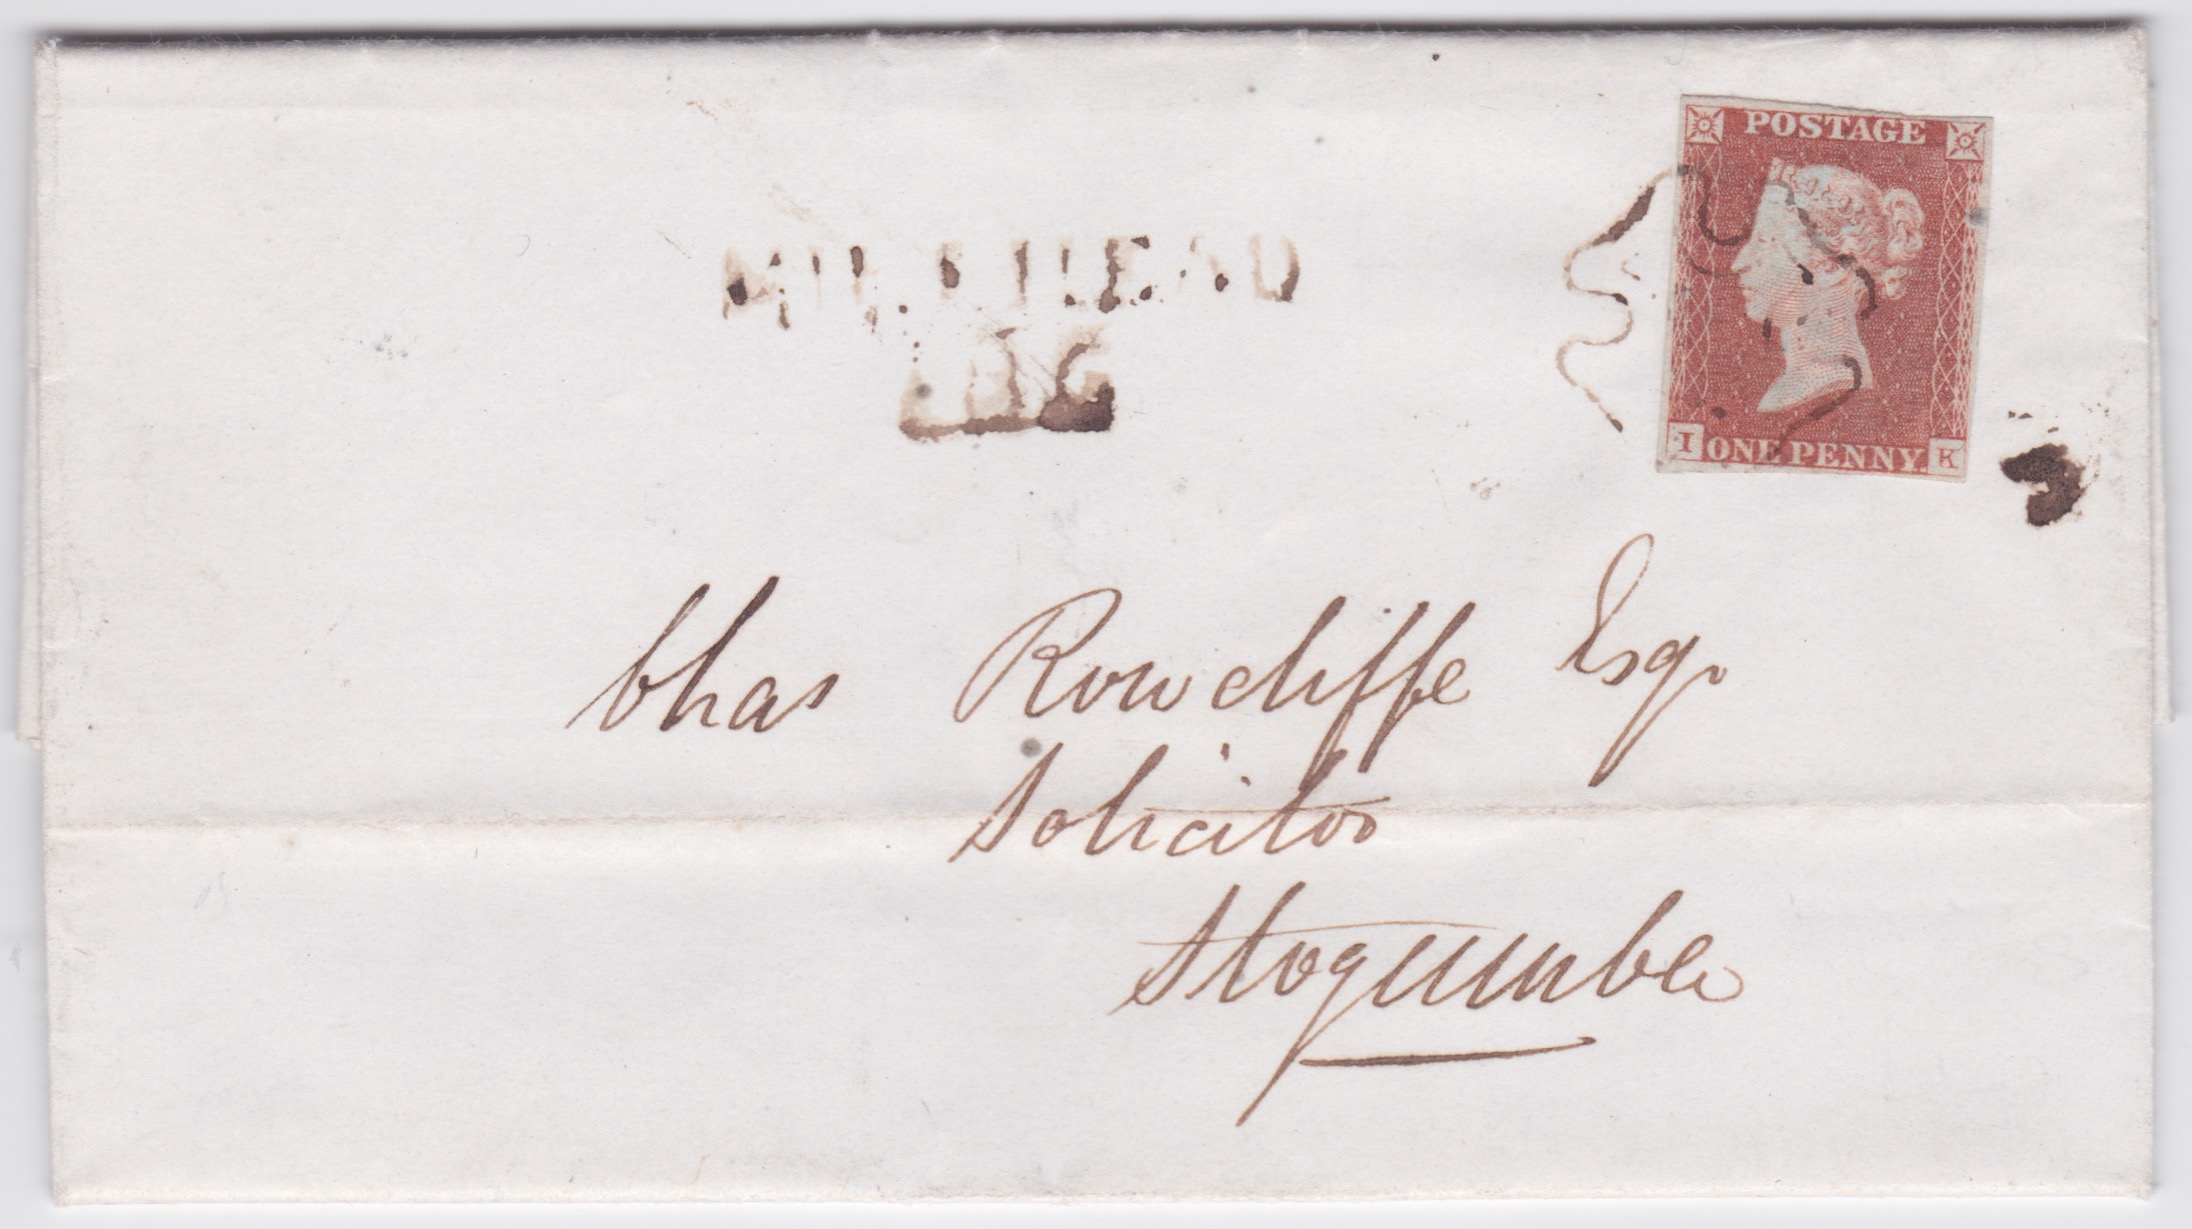 POSTAGE
I ONE PENNY. K
Chas Rowcliffe Esqr
Solicitor
Stogumber